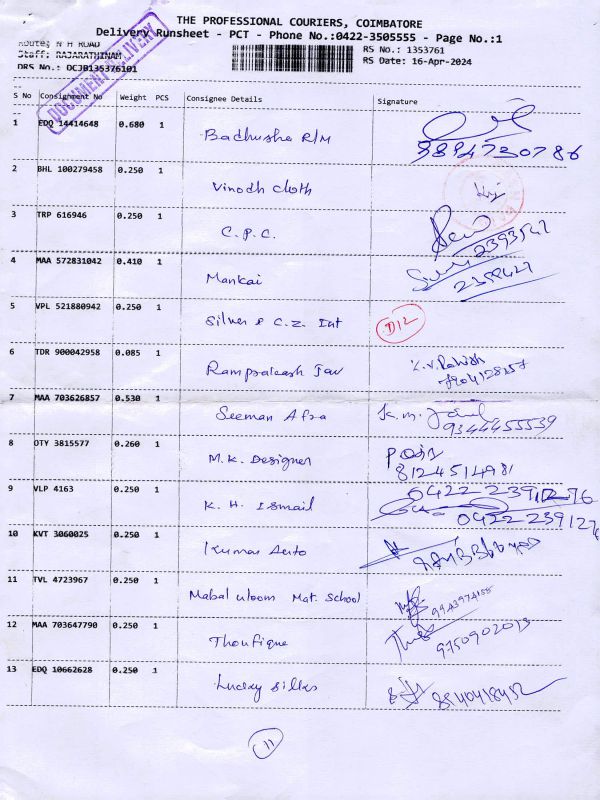 THE PROFESSIONAL COURIERS, COIMBATORE
Delivery Runsheet - PCT - Phone No.:0422-3505555 - Page No.:1
Route: N H ROAD
RS No.: 1353761
Staff: RAJARATHINAM
RS Date: 16-Apr-2024
DRS No.: DCJB135376101
DOCUMENT DELIVERY
S No Consignment No Weight PCS Consignee Details Signature
1 EDQ 14414648 0.680 1 Badhusha R/M 9894730786
2 BHL 100279458 0.250 1 Vinodh cloth
3 TRP 616946 0.250 1 C.P.C. 2393542
4 MAA 572831042 0.410 1 Mankai
5 VPL 521880942 0.250 1 Silver & C.Z. Int D12
6 TDR 900042958 0.085 1
7 MAA 703626857 0.530 1 Seeman Afra 9344455539
8 OTY 3815577 0.260 1 M.K. Designer
8124514981
9 VLP 4163 0.250 1 K. H. Ismail
10 KVT 3060025 0.250 1 Kumar Auto
11 TVL 4723967 0.250 1 Mabal uloom Mat. School 9943974155
12 MAA 703647790 0.250 1 Thoufique 9750902013
13 EDQ 10662628 0.250 1 Lucky silks
11